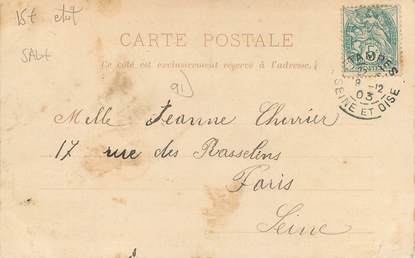 15€ etut
SALT
CARTE POSTALE
Ce côté est exclusivement réservé à l'adresse.
91)
8 -12
03
SEINE ET OISE
Melle Jeanne Chevrier
17 rue des Rasselins
Paris
Seine